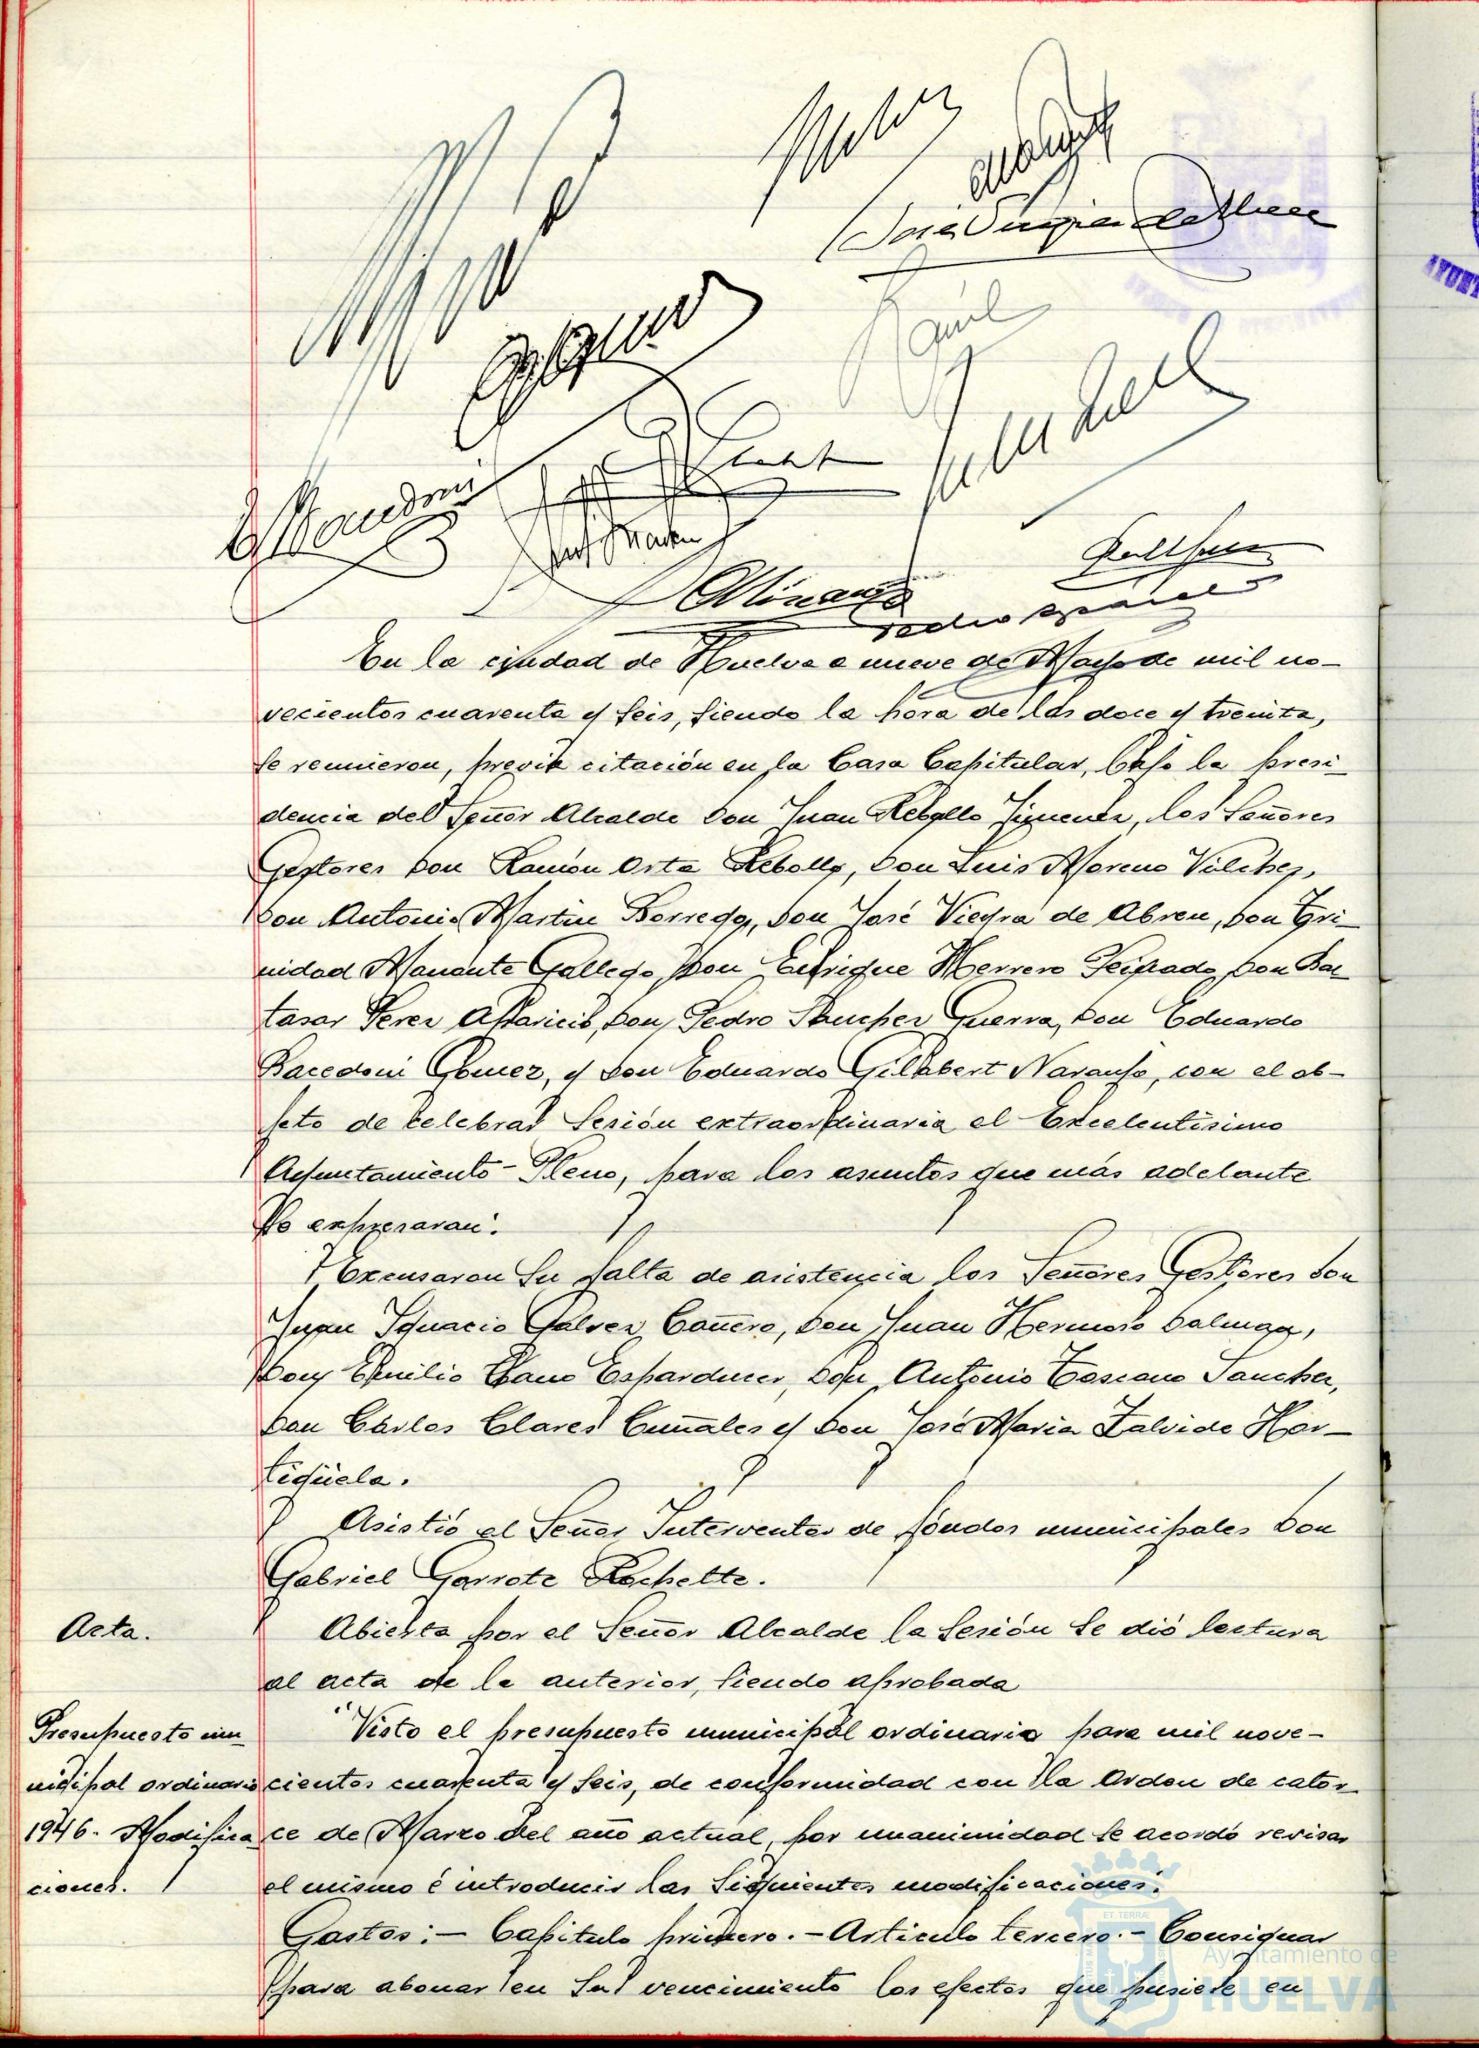 José Vieyra de Abreu
En la ciudad de Huelva a nueve de Mayo de mil no-
vecientos cuarenta y seis, siendo la hora de las doce y treinta,
se reunieron, previa citación en la Casa Capitular, bajo la presi-
dencia del Señor Alcalde Don Juan Rebollo Jimenez, los Señores
Gestores Don Ramón Orta Rebollo, Don Luis Moreno Vilchez,
Don Antonio Martin Borrego, Don José Vieyra de Abreu, Don Tri-
nidad Manante Gallego, Don Enrique Herrero Don Bal-
tasar Perez Aparicio, Don Pedro Sanchez Guerra, Don Eduardo
Bacedoni Gomez, y Don Eduardo Gilabert Naranjo, con el ob-
jeto de celebrar sesión extraordinaria el Excelentísimo
Ayuntamiento-Pleno, para los asuntos que más adelante
se expresaran.
Excusaron su falta de asistencia los Señores Gestores Don
Juan Ignacio Galvez Cañero, Don Juan Hermoso
Don Emilio Cano Esparducer, Don Antonio Toscano Sanchez,
Don Cárlos Clares Cuñales y Don José Maria Zalvide Hor-
tigüela.
Asistió el Señor Interventor de fóndos municipales Don
Gabriel Garrote Rochette.
Acta.
Abierta por el Señor Alcalde la sesión se dió lectura
al acta de la anterior, siendo aprobada
Presupuesto mu-
nicipal ordinario
1946. Modifica
ciones.
Visto el presupuesto municipal ordinario para mil nove-
cientos cuarenta y seis, de conformidad con la Orden de cator-
ce de Marzo del año actual, por unanimidad se acordó revisar
el mismo é introducir las siguientes modificaciones:
Gastos:- Capitulo primero.- Articulo tercero.- Consignar
para abonar en su vencimiento los efectos que pusiese en
Ayuntamiento de
HUELVA